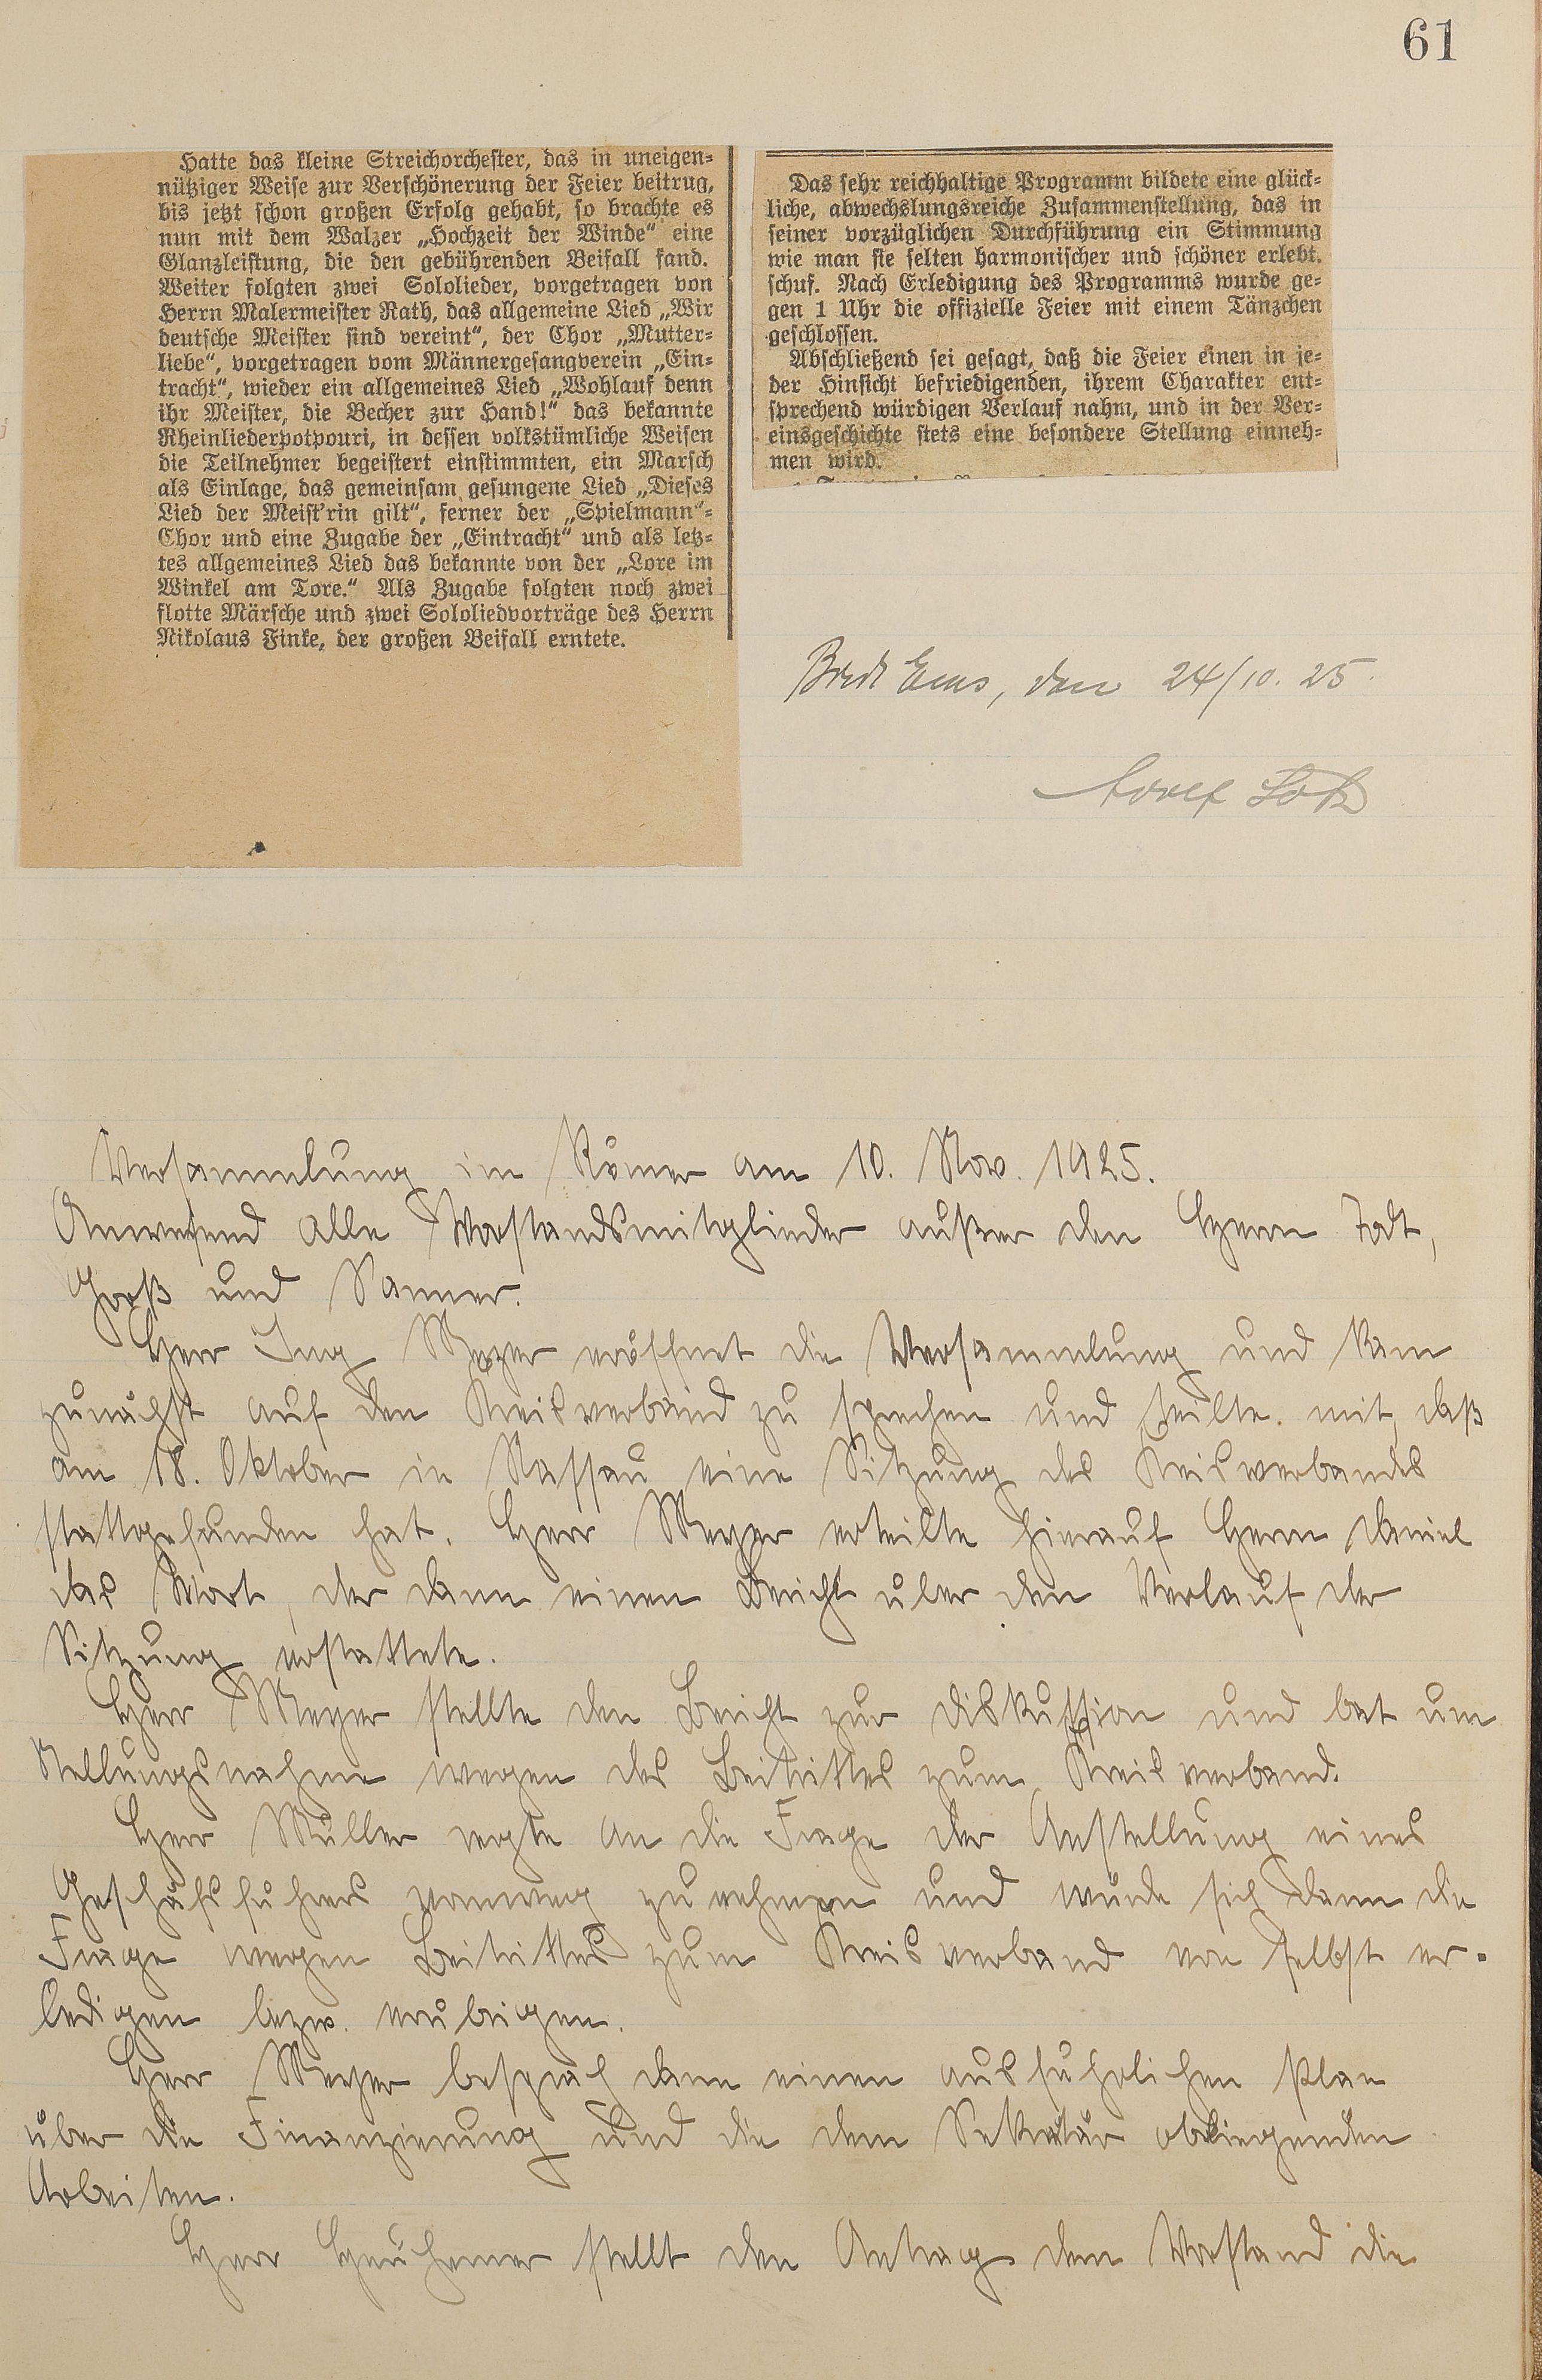 61
Hatte das kleine Streichorchester, das in uneigen-
nütziger Weise zur Verschönerung der Feier beitrug,
bis jetzt schon großen Erfolg gehabt, so brachte es
nun mit dem Walzer „Hochzeit der Winde“ eine
Glanzleistung, die den gebührenden Beifall fand.
Weiter folgten zwei Sololieder, vorgetragen von
Herrn Malermeister Rath, das allgemeine Lied „Wir
deutsche Meister sind vereint“, der Chor „Mutter-
liebe“, vorgetragen vom Männergesangverein „Ein-
tracht“, wieder ein allgemeines Lied „Wohlauf denn
ihr Meister, die Becher zur Hand!“ das bekannte
Rheinliederpotpouri, in dessen volkstümliche Weisen
die Teilnehmer begeistert einstimmten, ein Marsch
als Einlage, das gemeinsam gesungene Lied „Dieses
Lied der Meist'rin gilt“, ferner der „Spielmann“-
Chor und eine Zugabe der „Eintracht“ und als letz-
tes allgemeines Lied das bekannte von der „Lore im
Winkel am Tore.“ Als Zugabe folgten noch zwei
flotte Märsche und zwei Sololiedvorträge des Herrn
Nikolaus Finke, der großen Beifall erntete.
Das sehr reichhaltige Programm bildete eine glück-
liche, abwechslungsreiche Zusammenstellung, das in
seiner vorzüglichen Durchführung ein Stimmung
wie man sie selten harmonischer und schöner erlebt.
schuf. Nach Erledigung des Programms wurde ge-
gen 1 Uhr die offizielle Feier mit einem Tänzchen
geschlossen.
Abschließend sei gesagt, daß die Feier einen in je-
der Hinsicht befriedigenden, ihrem Charakter ent-
sprechend würdigen Verlauf nahm, und in der Ver-
einsgeschichte stets eine besondere Stellung einneh-
men wird.
Ems, den 24/10. 25.
Versammlung im Römer am 10. Nov. 1925.
Anwesend alle Vorstandsmitglieder außer den Herrn Jodt,
Groß und Sanner.
Herr Ing Meyer eröffnet die Versammlung und kam
zunächst auf den Kreisverband zu sprechen und teilte mit, daß
am 18. Oktober in Nassau eine Sitzung des Kreisverbandes
stattgefunden hat. Herr Meyer erteilte hierauf Herrn Daniel
das Wort, der dann einen Bericht über den Verlauf der
Sitzung erstattete.
Herr Meyer stellte den Bericht zur Diskussion und bat um
Stellungsnahme wegen des Beitrittes zum Kreisverband.
Herr Müller regte an die Frage der Anstellung eines
Geschäfsführers vorweg zu nehmen und würde sich dann die
Frage wegen Beitrittes zum Kreisverband von selbst er-
ledigen bezw. erübrigen.
Herr Meyer besprach dann einen ausführlichen Plan
über die Finanzierung und die dem Sekretär obliegenden
Arbeiten.
Herr Heuchemer stellt den Antrag dem Vorstand die